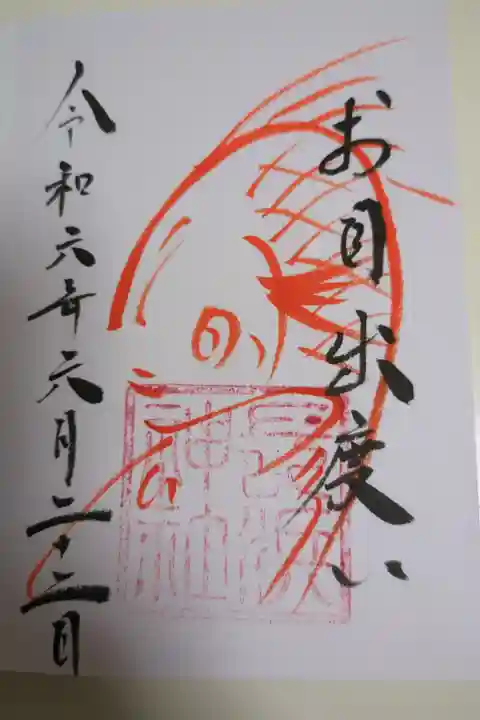 お目出度い
令和六年六月二十二日